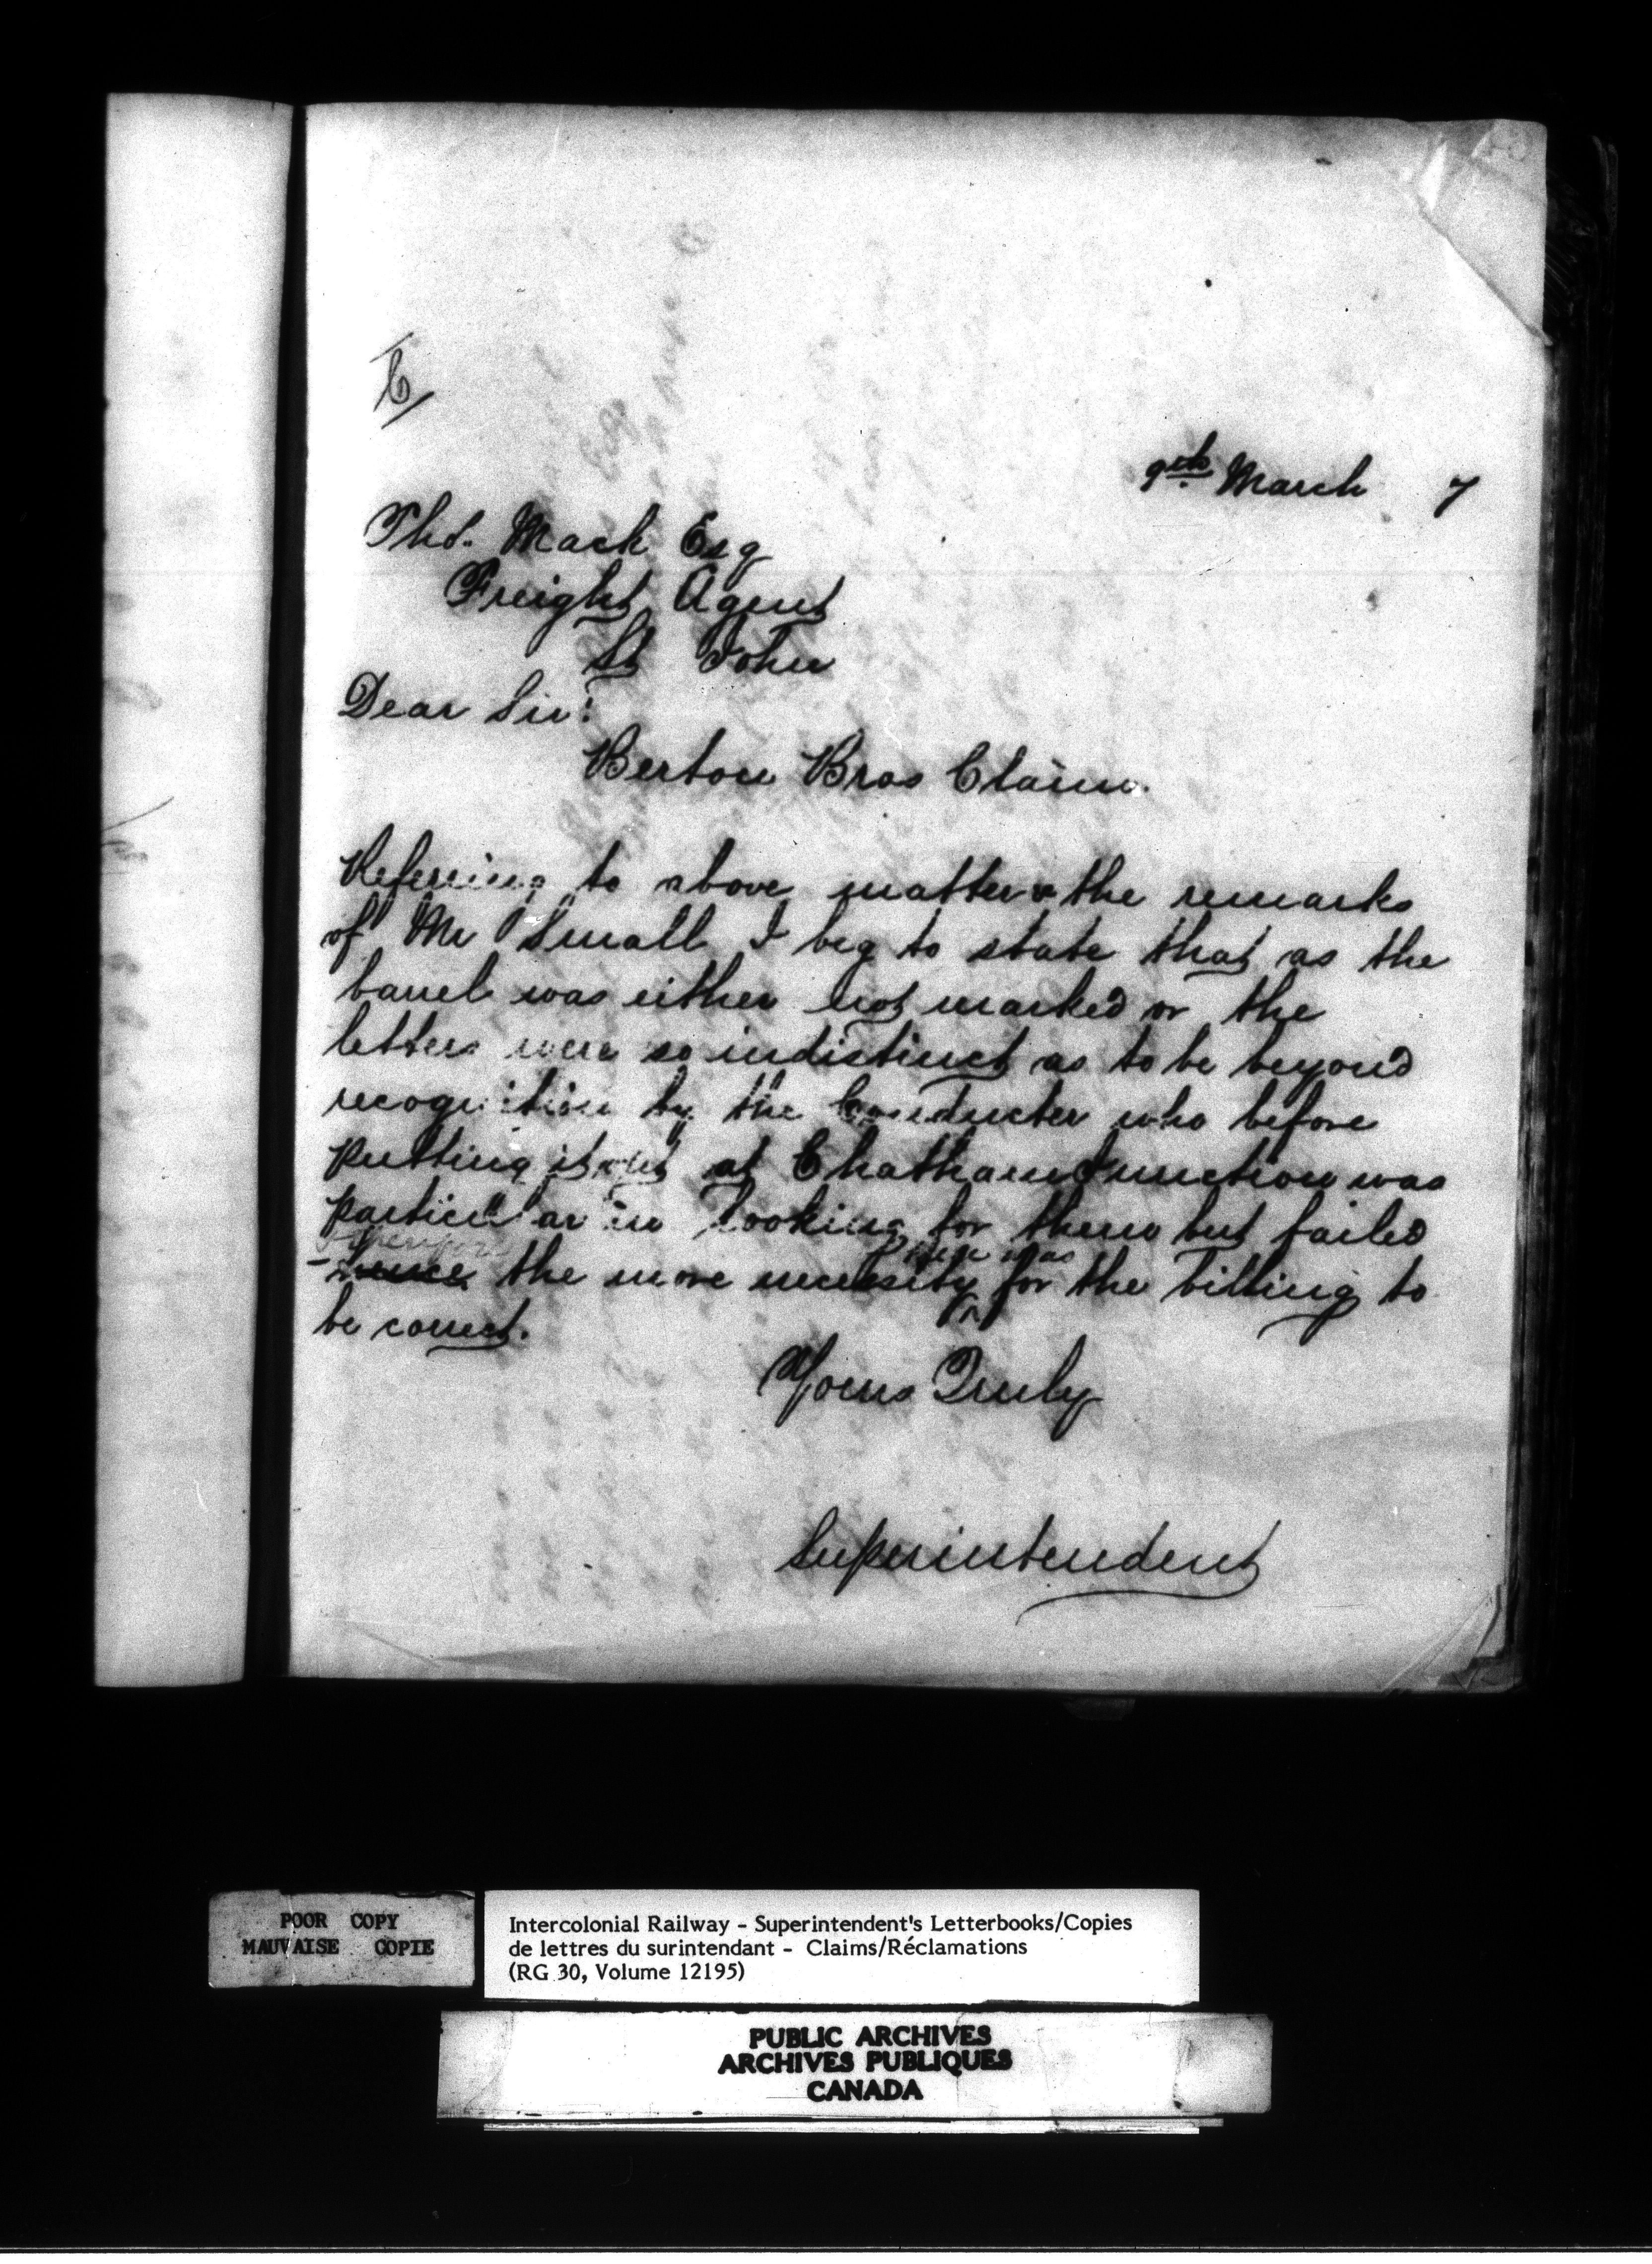 C/
9th March 7
Thos. Mack Esq
Freight Agent
St John
Dear Sir:
Berton Bros Claim.
Referring to above matter & the remarks
of Mr Small I beg to state that as the
barrel was either not marked or the
letters were so indistinct as to be beyond
recognition by the Conductor who before
putting it out at Chatham Junction was
particular in looking for them but failed
therefore
hence the more necessity for the billing to
there was
be correct.
Yours Truly
Superintendent
POOR COPY
MAUVAISE COPIE
Intercolonial Railway - Superintendent's Letterbooks/Copies
de lettres du surintendant - Claims/Réclamations
(RG 30, Volume 12195)
PUBLIC ARCHIVES
ARCHIVES PUBLIQUES
CANADA